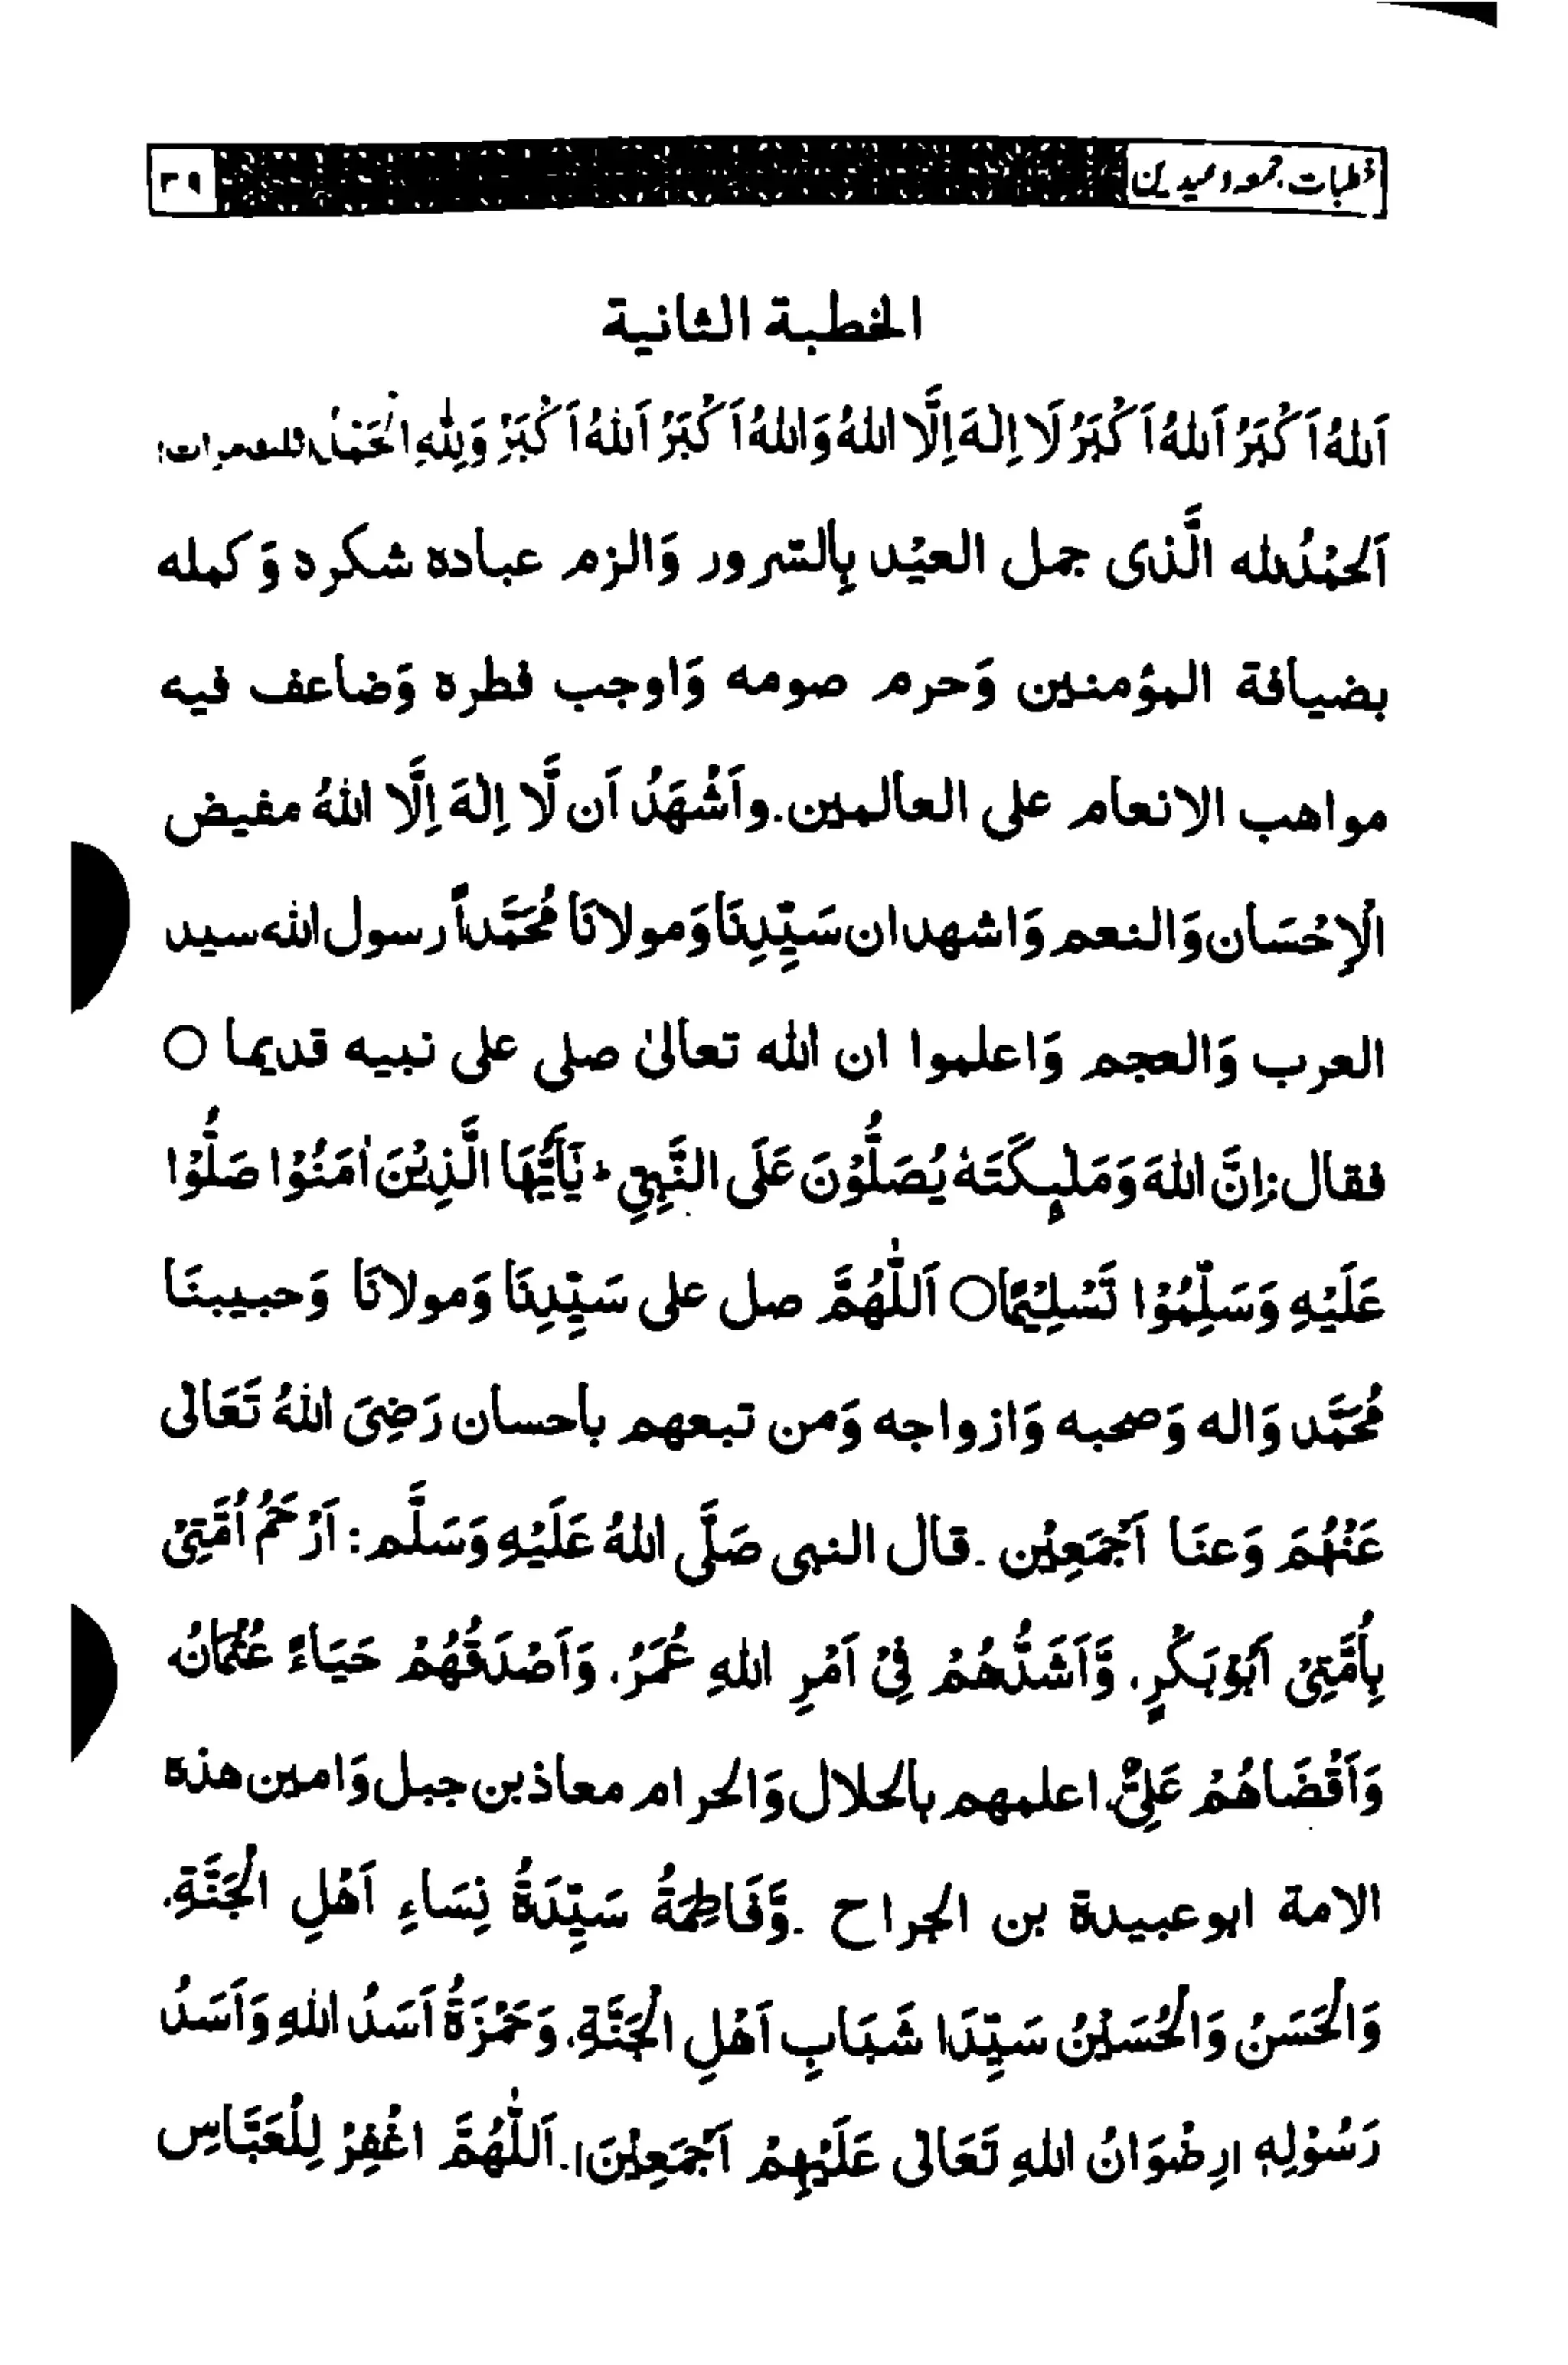 خطبات جمعہ وعیدین
الخطبة الثانية
اَللهُ اَكْبَرُ اَللهُ اَكْبَرُ لَا اِلٰهَ اِلَّا اللهُ وَاللهُ اَكْبَرُ اَللهُ اَكْبَرُ وَلِلّٰهِ الْحَمْدُ
اَلْحَمْدُلله الَّذى جمل العيْد بِالسّرور وَالزم عباده شكره وَكمله
بضيافة المؤمنين وَحرم صومه وَاوجب فطره وَضاعف فيه
مواهب الانعام على العالمين. واَشْهَدُ اَن لَّا اِلٰهَ اِلَّا اللهُ مفيض
الْاِحْسَان وَالنعم وَاشهد ان سَيِّدِنَا وَمولانَا مُحَمَّداً رسول الله سيد
العرب وَالعجم وَاعلموا ان الله تعالىٰ صلى على نبيه قديما ○
فقال: اِنَّ اللهَ وَمَلٰٓئِكَتَهٗ يُصَلُّوْنَ عَلَى النَّبِيِّ ط يٰٓاَيُّهَا الَّذِيْنَ اٰمَنُوْا صَلُّوْا
عَلَيْهِ وَسَلِّمُوْا تَسْلِيْمًا ○ اَللّٰهُمَّ صل على سَيِّدِنَا وَمولانَا وَحبيبنَا
مُحَمَّد وَاله وَصحبه وَازواجه وَمن تبعهم باحسان رَضِىَ اللهُ تَعَالى
عَنْهُمَ وَعنَا اَجْمَعِيْن ۔ قال النبى صَلَّى اللهُ عَلَيْهِ وَسَلَّم: اَرْحَمُ اُمَّتِىْ
بِاُمَّتِىْ اَبُوْبَكْرٍ، وَّاَشَدُّهُمْ فِىْ اَمْرِ اللهِ عُمَرُ، وَاَصْدَقُهُمْ حَيَاءً عُثْمَانُ،
وَاَقْضَاهُمْ عَلِىٌّ، اعلمهم بالحلال وَالحرام معاذ بن جبل وَامين هذه
الامة ابوعبيدة بن الجراح ۔ وَّفَاطِمَةُ سَيِّدَةُ نِسَاءِ اَهْلِ الْجَنَّةِ،
وَالْحَسَنُ وَالْحُسَيْنُ سَيِّدَا شَبَابِ اَهْلِ الْجَنَّةِ، وَحَمْزَةُ اَسَدُ اللهِ وَاَسَدُ
رَسُوْلِهٖ (رِضْوَانُ اللهِ تَعَالى عَلَيْهِمْ اَجْمَعِيْنَ)۔ اَللّٰهُمَّ اغْفِرْ لِلْعَبَّاسِ